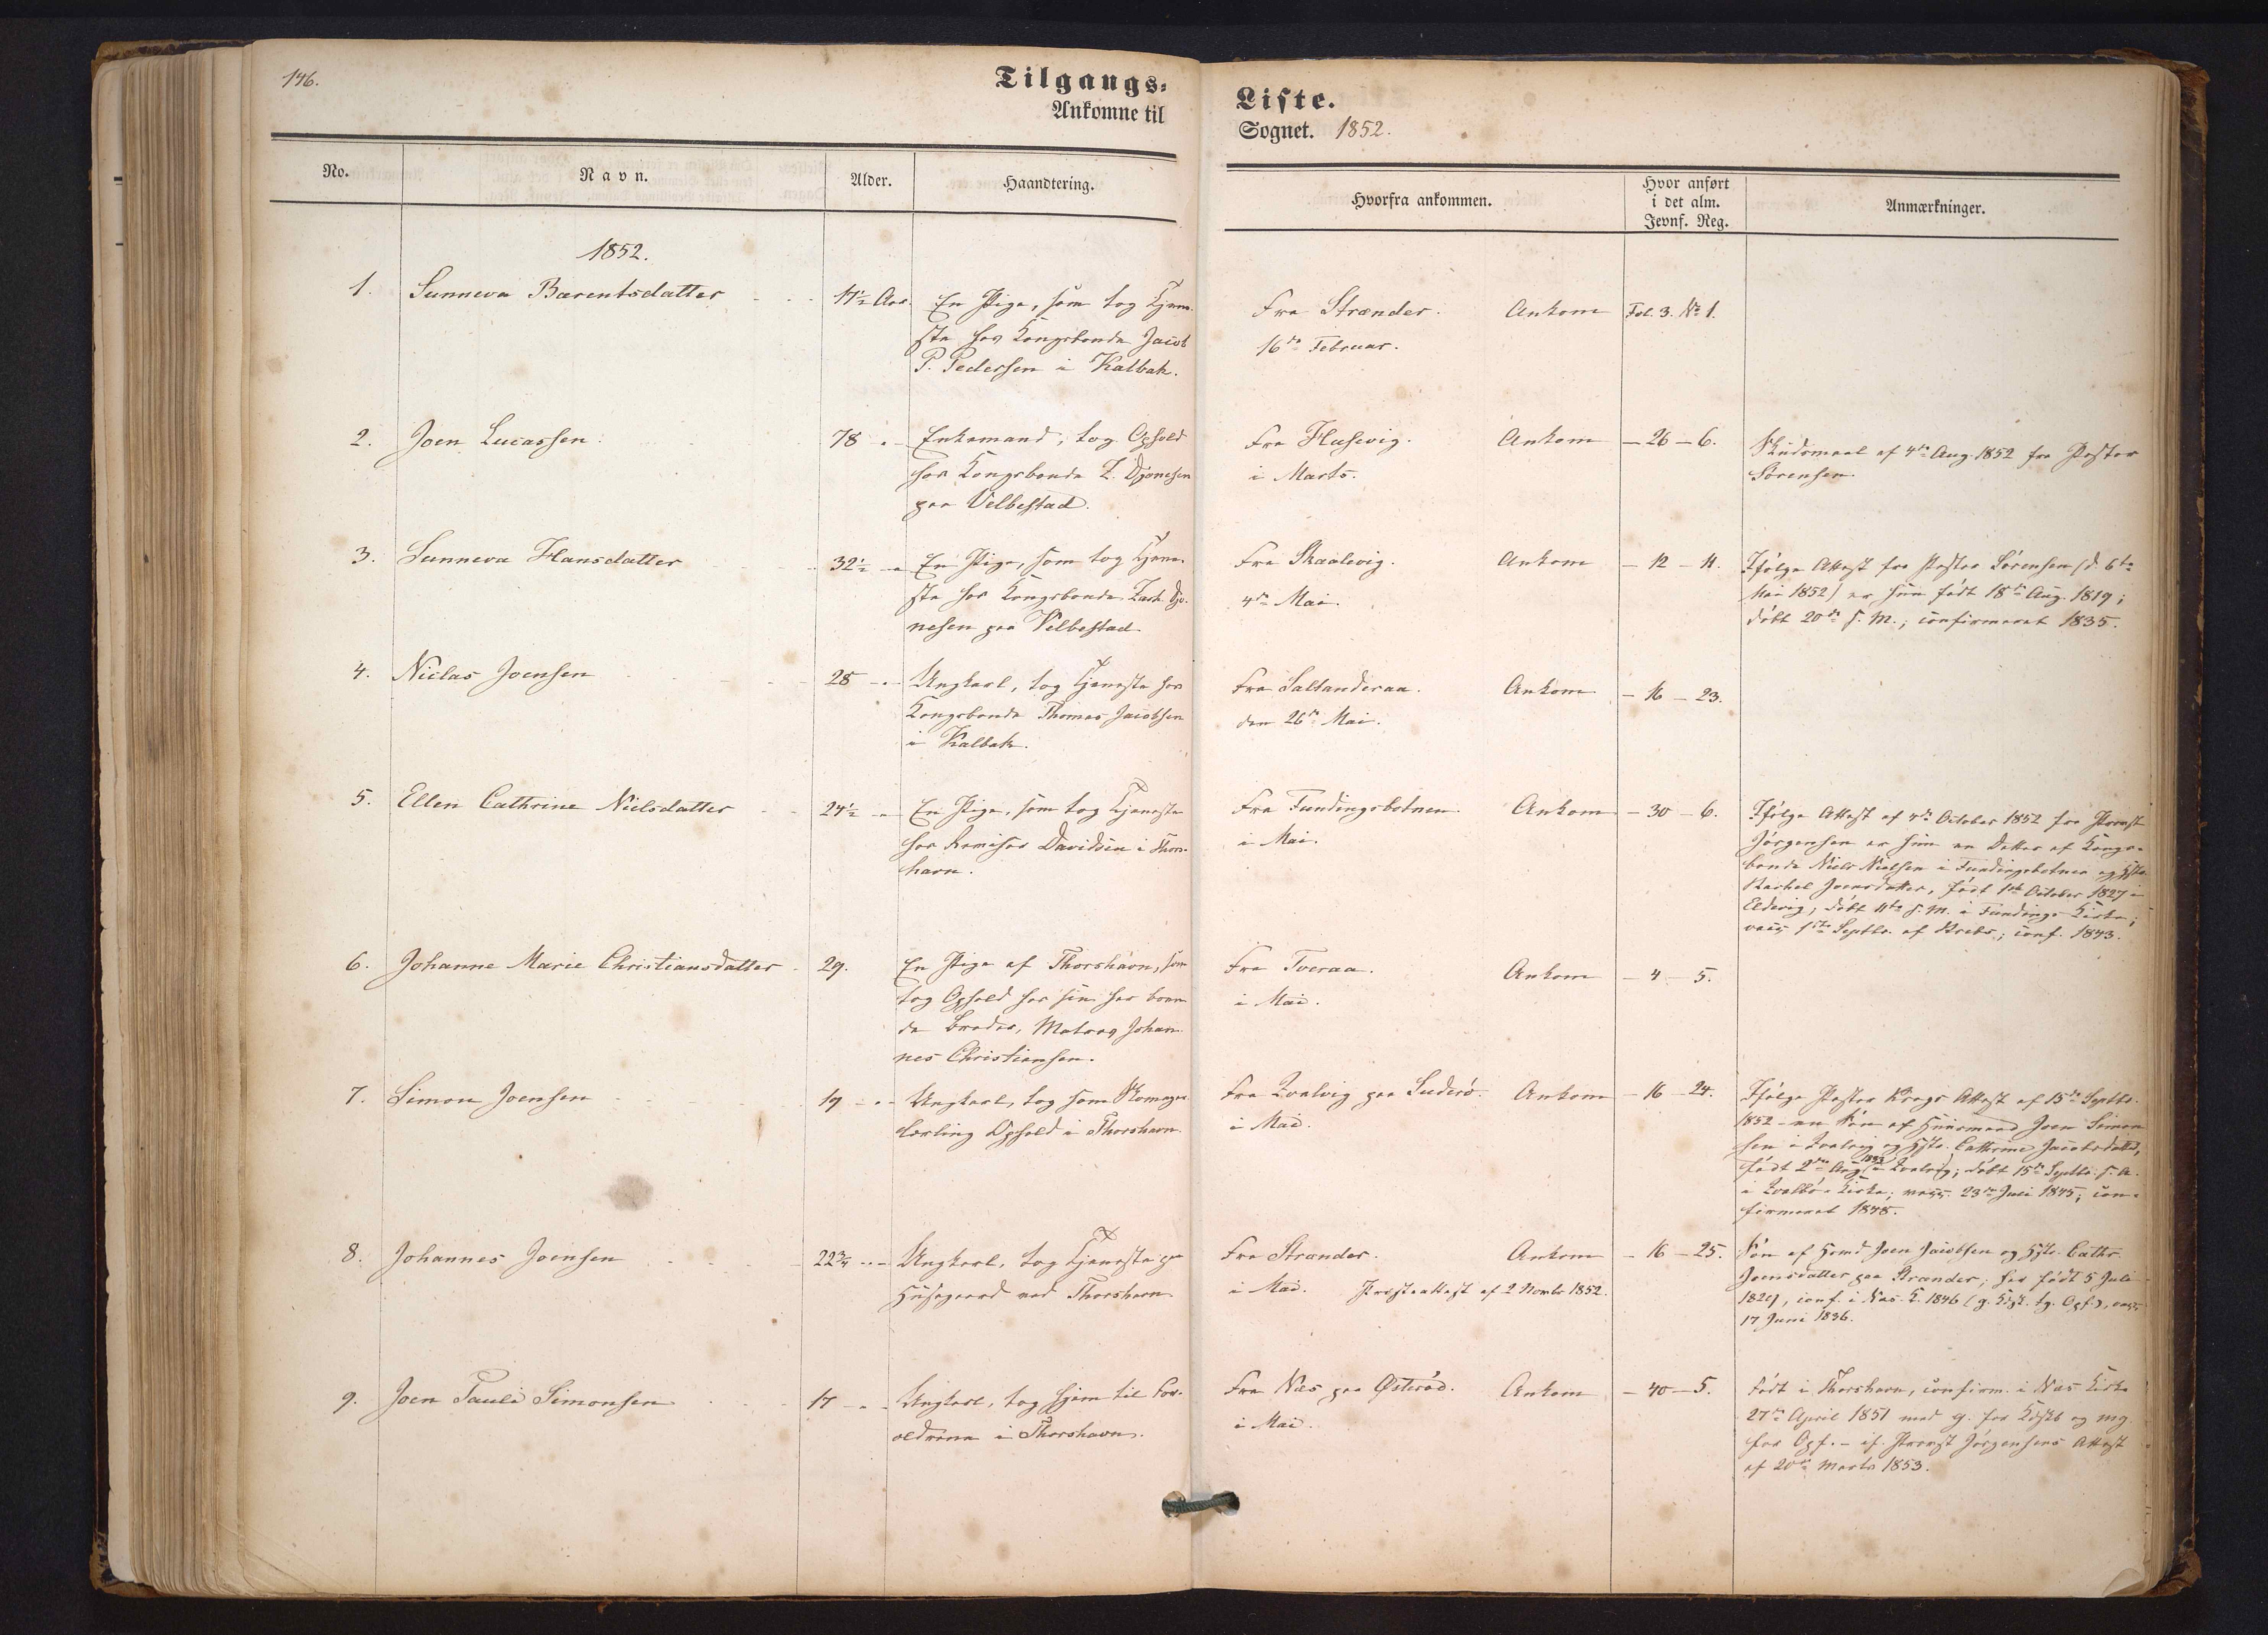 146.
Tilgangs-
Ankomne til
Liste.
Sognet. 1852.
No.
Navn.
Alder.
Haandtering.
Hvorfra ankommen.
Hvor anført
i det alm.
Jevnf. Reg.
Anmærkninger.
1852.
1. Sunneva Barentsdatter
Aar.
En Pige, som tog Tjene-
ste hos Kongsbonde Jacob
P. Pedersen i Kalbak.
Fra Strænder. Ankom
16de Februar.
Fol. 3. No 1.
2. Joen Lucassen
78 "
Enkemand, tog Ophold
hos Kongsbonde Z. Djonesen
paa Velbestad.
Fra Husevig. Ankom
i Marts.
— 26 — 6.
Skudsmaal af 4de Aug. 1852 fra Pastor
Sørensen.
3. Sunneva Hansdatter
32½ "
En Pige, som tog Tjene-
ste hos Kongsbonde Zach. Djo-
nesen paa Velbestad
Fra Skaalevig. Ankom
4de Mai.
— 12 — 11.
Ifølge Attest fra Pastor Sørensen (d. 6te
Mai 1852) er hun født 18de Aug. 1819;
døbt 20de s. M.; confirmeret 1835.
4. Niclas Joensen
28 "
Ungkarl, tog Tjeneste hos
Kongsbonde Thomas Jacobsen
i Kalbak.
Fra Saltanderaa. Ankom
den 26de Mai.
— 16 — 23.
5. Ellen Cathrine Nielsdatter
24½ "
En Pige, som tog Tjeneste
hos Davidsen i Thors-
havn.
Fra Fundingsbotnen. Ankom
i Mai.
— 30 — 6.
Ifølge Attest af 4de October 1852 fra Provst
Jørgensen er hun en Datter af Kongs-
bonde Niels Nielsen i Fundingsbotnen og Hstr.
Rachel Joensdatter, født 1ste October 1827 i
Eldevig; døbt 11te s. M. i Fundings Kirke;
vacc. Septbr. af Krebs; conf. 1843.
6. Johanne Marie Christiansdatter
29.
En Pige af Thorshavn, som
tog Ophold hos sin her boen-
de Broder, Matros Johan-
nes Christiansen.
Fra Tveraa. Ankom
i Mai.
— 4 — 5.
7. Simon Joensen
19 "
Ungkarl, tog som Skomager-
lærling Ophold i Thorshavn.
Fra Zvalvig paa Suderø. Ankom
i Mai.
— 16 — 24.
Ifølge Pastor Krogs Attest af 15de Septbr.
1852 - en Søn af Huusmand Joen Simon-
sen i Zvalvig og Hstr. Cathrine Jacobsdatter,
født 2den Aug. 1833 i Zvalvig; døbt 15de Septbr. s. A.
i Zvalbø Kirke; vacc. 23de Juli 1845; con-
firmeret 1848.
8. Johannes Joensen
22¾ "
Ungkarl, tog Tjeneste paa
Husegaard ved Thorshavn
Fra Strænder. Ankom
i Mai. Præsteattest af 2 Novbr 1852.
— 16 — 25.
Søn af Joen Jacobsen og Hstr. Cathr.
Joensdatter paa Strænder; her født 5 Juli
1829, conf. i Næs K. 1846 (g. Kdsk. tg. Opf.), vacc.
17 Juni 1836.
9. Joen Pauli Simonsen
17 "
Ungkarl, tog hjem til For-
ældrene i Thorshavn.
Fra Næs paa Østerød. Ankom
i Mai.
— 40 — 5.
Født i Thorshavn, confirm. i Næs Kirke
27de April 1851 med g. for Kdskb og mg
for Opf. - if. Provst Jørgensens Attest
af 20de Marts 1853.